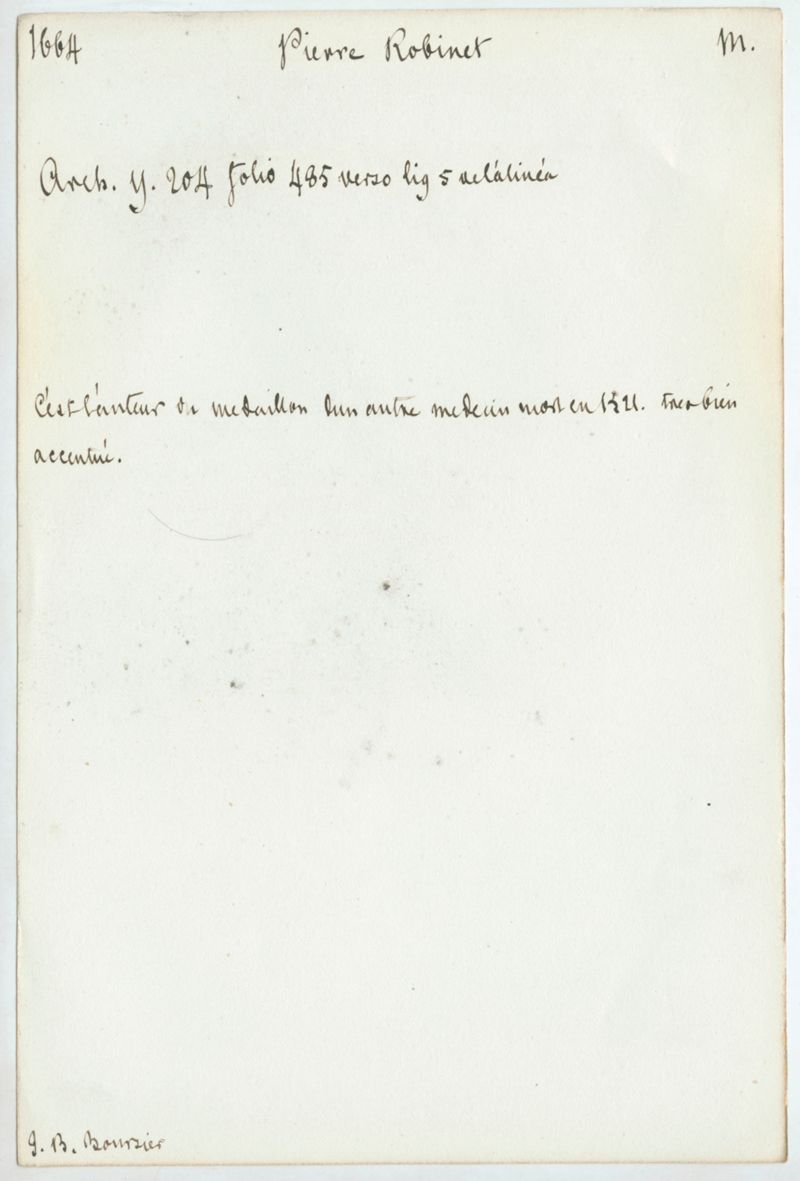 1664 Pierre Robinet M.
Arch. Y. 204 folio 485 verso lig 5 de l'alinéa
C'est l'auteur du medaillon d'un autre medecin mort en tres bien
accentué.
J. B. Boursier